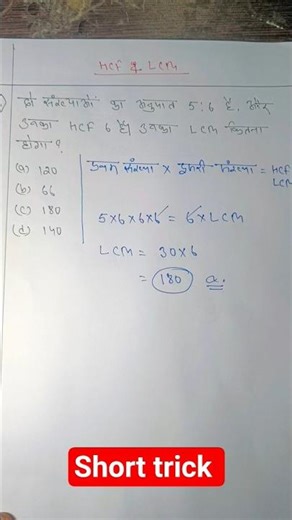 HCF & LCM
दो संख्याओं का अनुपात 5:6 है, और
उनका HCF 6 है। उनका LCM कितना
होगा ?
(a) 120
(b) 66
(c) 180
(d) 140
प्रथम संख्या × दूसरी संख्या = HCF
LCM
5×6×6×6 = 6×LCM
LCM = 30×6
= 180 a.
Short trick